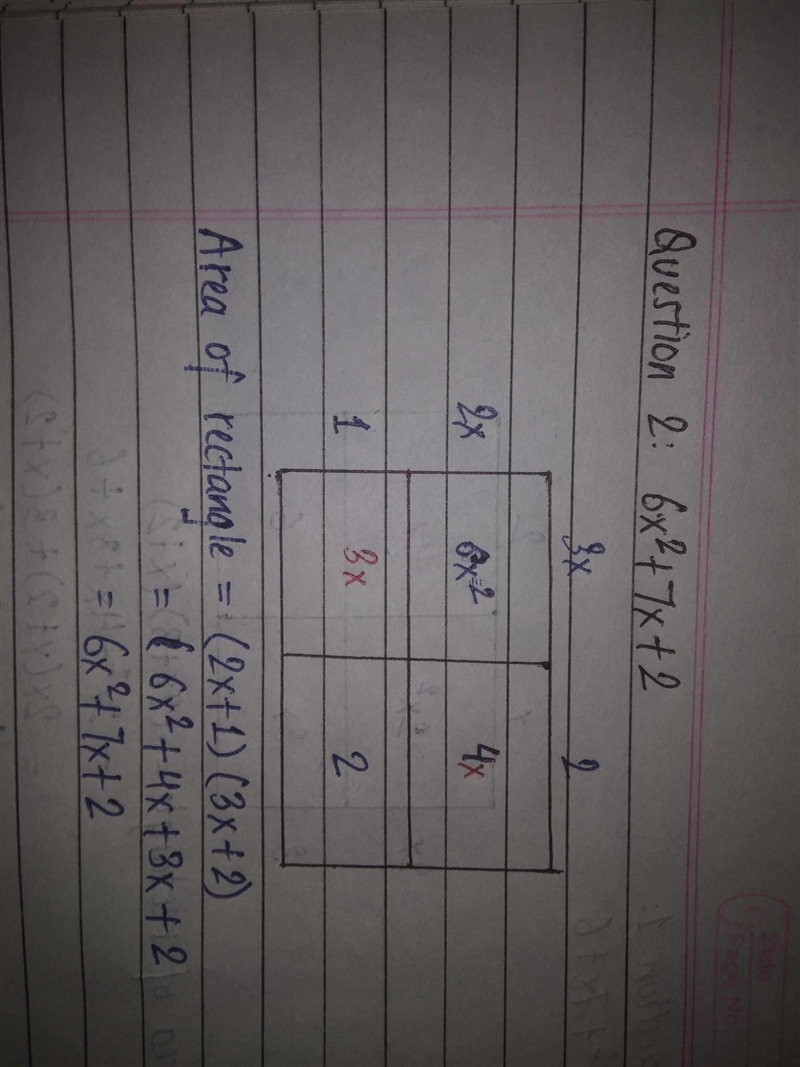 Question 2: 6x²+7x+2
3x 2
2x 6x² 4x
1 3x 2
Area of rectangle = (2x+1) (3x+2)
= ( 6x²+4x+3x+2
= 6x²+7x+2
Date
Page No